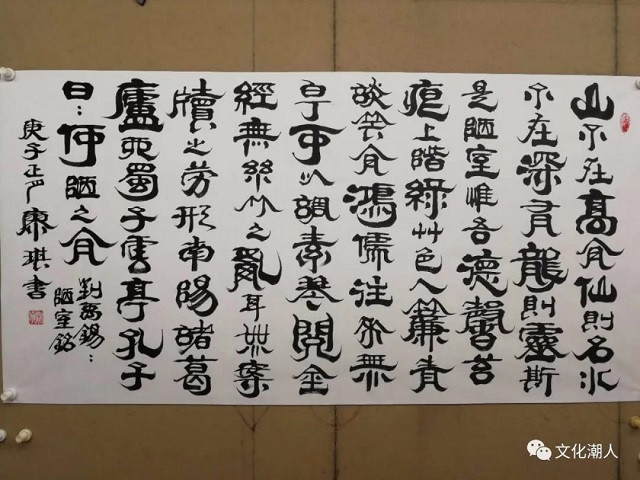 山不在高有仙則名水
不在深有龍則靈斯
是陋室惟吾德馨苔
痕上階綠艸色入簾青
談笑有鴻儒往來無
白丁可以調素琴閱金
經無絲竹之亂耳無案
牘之勞形南陽諸葛
廬西蜀子雲亭孔子
曰：何陋之有
劉禹錫：
陋室銘
庚子正 康琪書
文化潮人